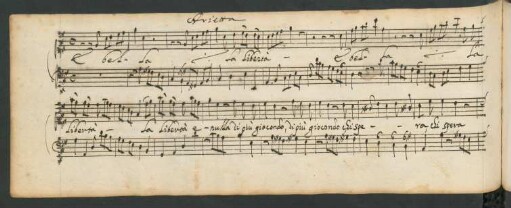 Arietta
E bel - la la libertà - E bel - la - la
libertà - la libertà e - nulla di più giocondo, di più giocondo chi spe - - ra chi spera